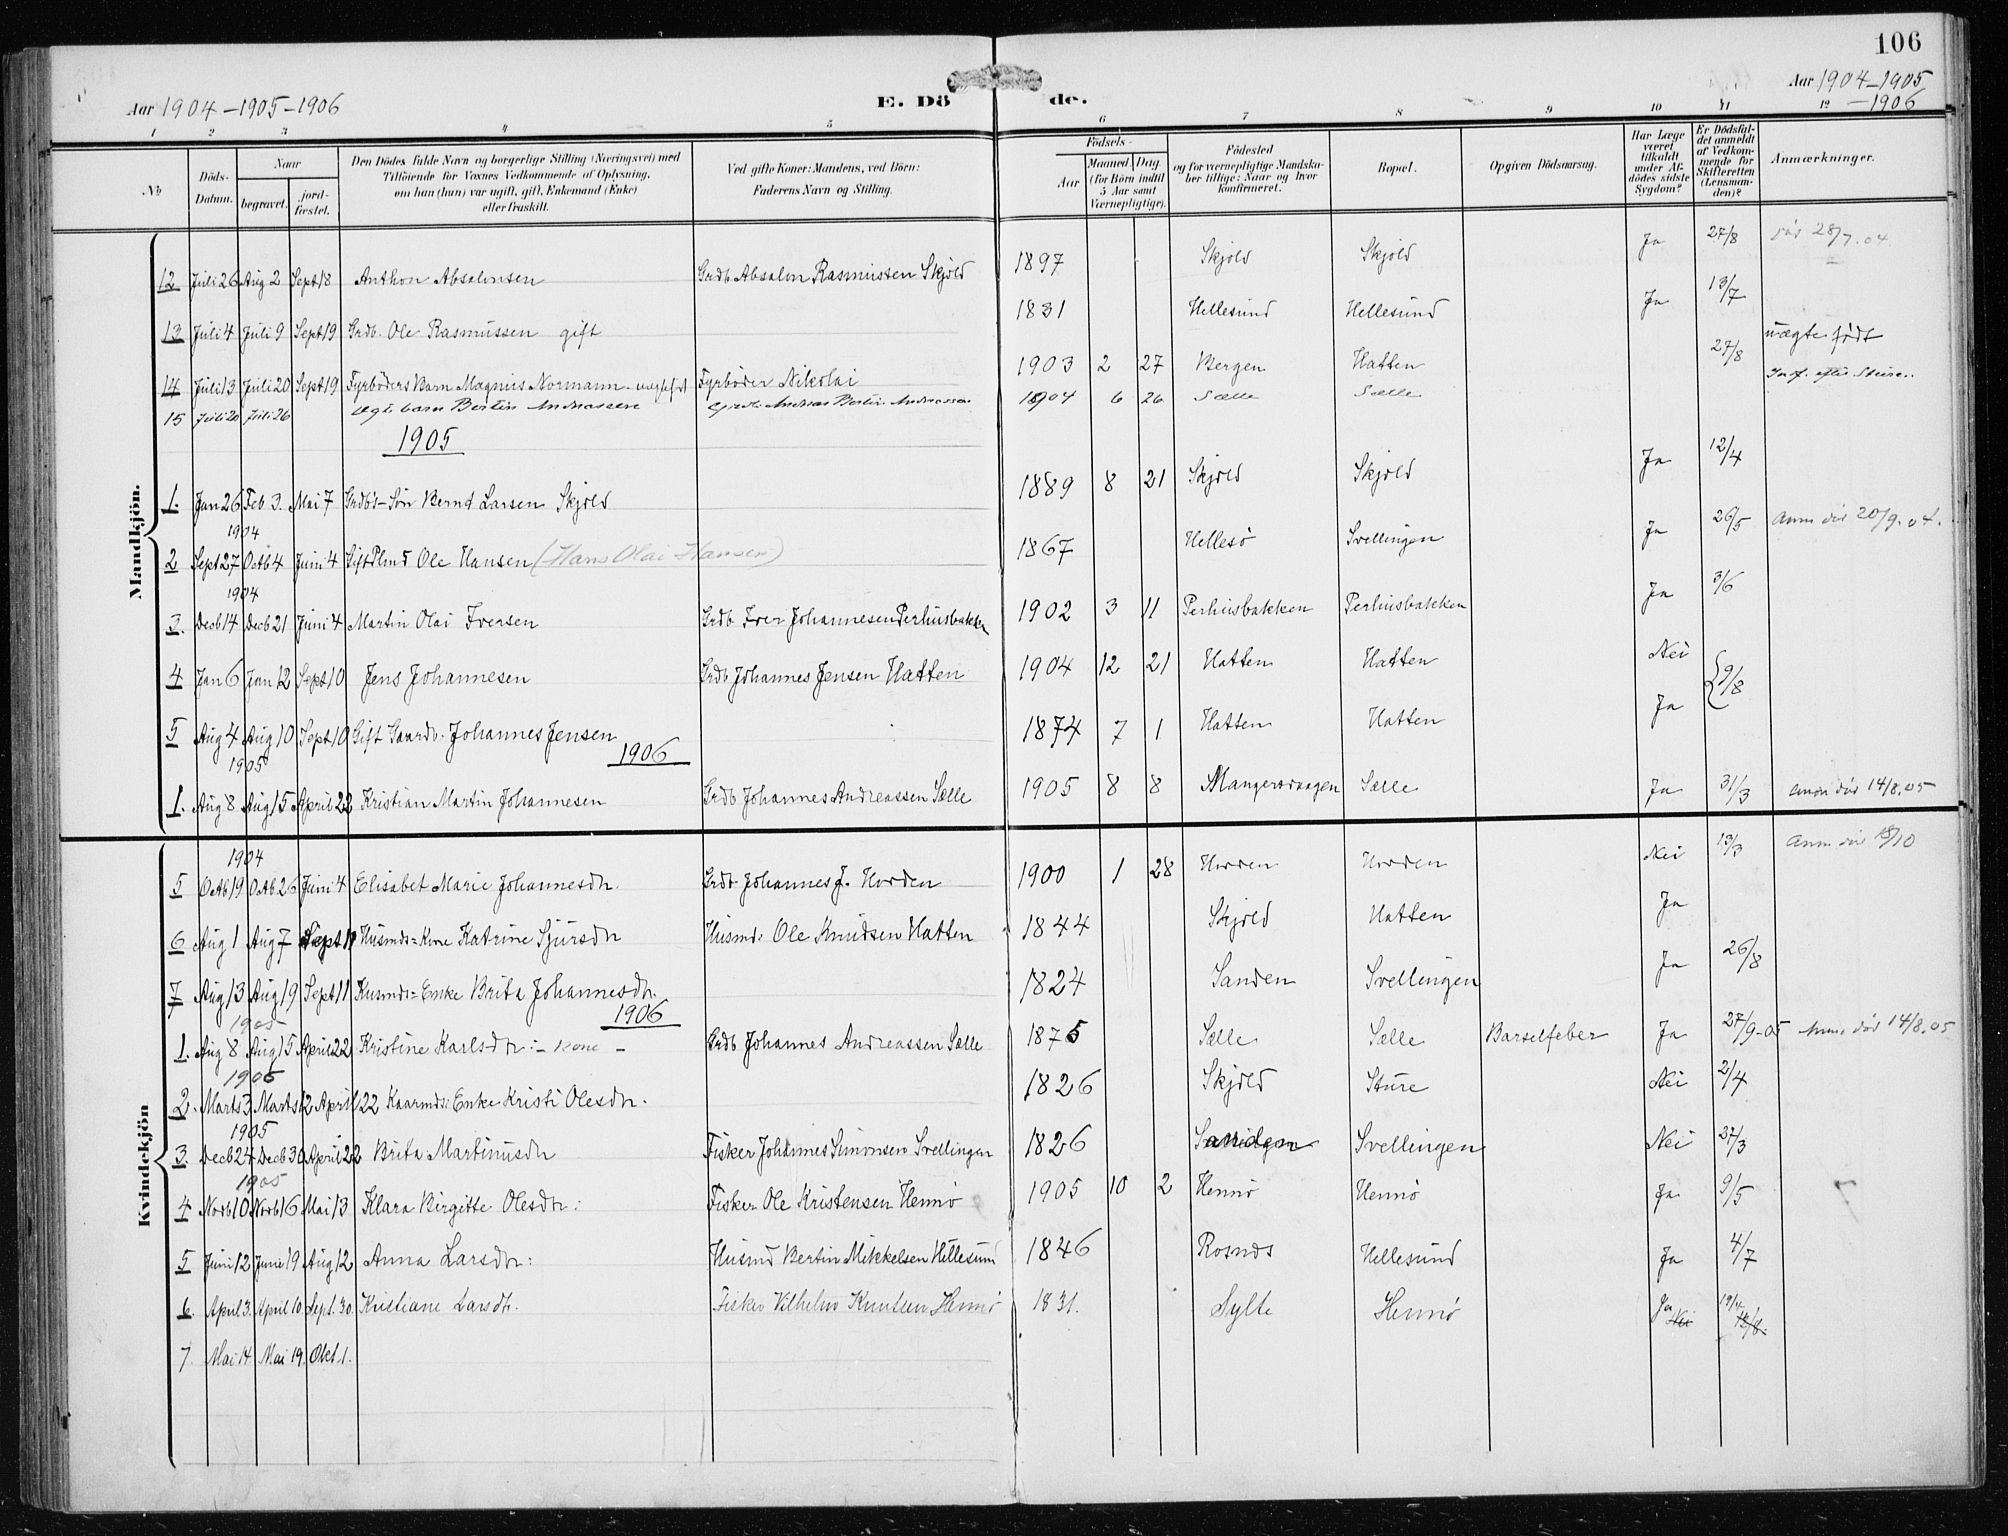 106
Aar 1904-1905-1906
E. Dö de.
Aar 1904-1905
-1906
1 2 3 4 5 6 7 8 9 10 11 12
No
Döds-Datum.
Naar
begravet.
jord-fæstet.
Den Dödes fulde Navn og borgerlige Stilling (Næringsvei) med
Tilföiende for Voxnes Vedkommende af Oplysning,
om han (hun) var ugift, gift, Enkemand (Enke)
eller fraskilt.
Ved gifte Koner: Mandens, ved Börn:
Faderens Navn og Stilling.
Födsels-
Aar
Maaned. Dag.
(for Börn indtil
5 Aar samt
Værnepligtige).
Födested
og for værnepligtige Mandska-
ber tillige: Naar og hvor
konfirmeret.
Bopæl.
Opgiven Dödsaarsag.
Har Læge
været
tilkaldt
under Af-
dödes sidste
Sygdom?
Er Dödsfal-
det anmeldt
af Vedkom-
mende for
Skifteretten
(Lensman-
den)?
Anmærkninger.
Mandkjön.
12 Juli 26 Aug 2 Sept 18 Anthon Absalonsen Grdb Absalon Rasmussen Skjold 1897 Skjold Skjold Ja 27/8 28/7.04.
13 Juli 4 Juli 9 Sept 19 Grdb. Ole Rasmussen gift 1831 Hellesund Hellesund Ja 13/7
14 Juli 13 Juli 20 Sept 19 Fyrböders Barn Magnus Normann Fyrböder Nikolai 1903 2 27 Bergen Hatten 27/8 uægte födt
15 Juli 20 Juli 26 Ægte barn Bertin Andreassen Andreas Bertin Andreassen 1904 6 26 Sælle Sælle
1905
1. Jan 26 Feb 3. Mai 7 Grdb's-Sön Bernt Larsen Skjold 1889 8 21 Skjold Skjold Ja 12/4
1904
2 Sept 27 Octb 4 Juni 4 Gift Plmd Ole Hansen (Hans Olai Hansen) 1867 Hellesö Svellingen Ja 26/5 Anm 20/9.04.
1904
3. Decb 14 Decb 21 Juni 4 Martin Olai Iversen Grdb Iver Johannesen Perhusbakken 1902 3 11 Perhusbakken Perhusbakken Ja 3/6
4 Jan 6 Jan 12 Sept 10 Jens Johannesen Grdb Johannes Jensen Hatten 1904 12 21 Hatten Hatten Nei
5 Aug 4 Aug 10 Sept 10 Gift Gaardb. Johannes Jensen 1874 7 1 Hatten Hatten Ja 9/8
1906
1905
1. Aug 8 Aug 15 April 22 Kristian Martin Johannesen Grdb Johannes Andreassen Sælle 1905 8 8 Mangersvaagen Sælle Ja 31/3 14/8.05
Kvindekjön
1904
5 Octb 19 Octb 26 Juni 4 Elisabet Marie Johannesdr. Grdb Johannes J. Horden 1900 1 28 Horden Horden Nei 13/3 Anm 18/10
6 Aug 1 Aug 7 Sept 11 Husmds-Kone Katrine Sjursdr Husmd. Ole Knudsen Hatten 1844 Skjold Hatten Ja
7 Aug 13 Aug 19 Sept 11 Husmds-Enke Brita Johannesdr. 1824 Sanden Svellingen Ja 26/8
1906
1905
1. Aug 8 Aug 15 April 22 Kristine Karlsdr:- Kone - Grdb Johannes Andreassen Sælle 1875 Sælle Sælle Barselfeber Ja 27/9-05 Anm 14/8.05
1906
2. Marts 3 Marts 12 April 22 Kaarmds: Enke Kristi Olesdr. 1826 Skjold Sture Nei 2/4
1905
3. Decb 24 Decb 30 April 22 Brita Martinusdr Fisker Johannes Simonsen Svellingen 1826 Svellingen Nei 27/3
1905
4 Novb 10 Novb 16 Mai 13 Klara Birgitte Olesdr: Fisker Ole Kristensen Hennö 1905 10 2 Hennö Hennö Ja 9/5
5 Juni 12 Juni 19 Aug 12 Anna Larsdr: Husmd Bertin Mikkelsen Hellesund 1846 Rosnæs Hellesund Ja 4/7
6. April 3. April 10 Sept. 30. Kristiane Larsdr. Fisker Vilhelm Knutsen Hennö 1831. Sylte Hennö Ja Nei 19/4
7. Mai 14. Mai 19. Okt. 1.